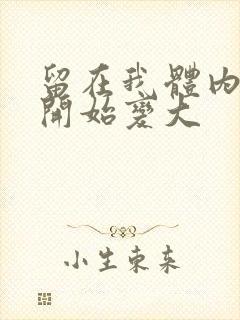 留在我體內
開始變大
小生東來